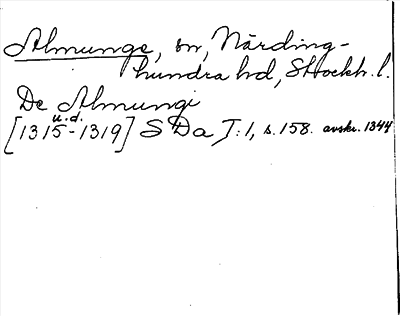 Almunge, sn, Närding-
hundra hd, Stockh. l.
De Almungi
u.d.
[1315-1319] SDa I:1, s.158. avskr. 1344